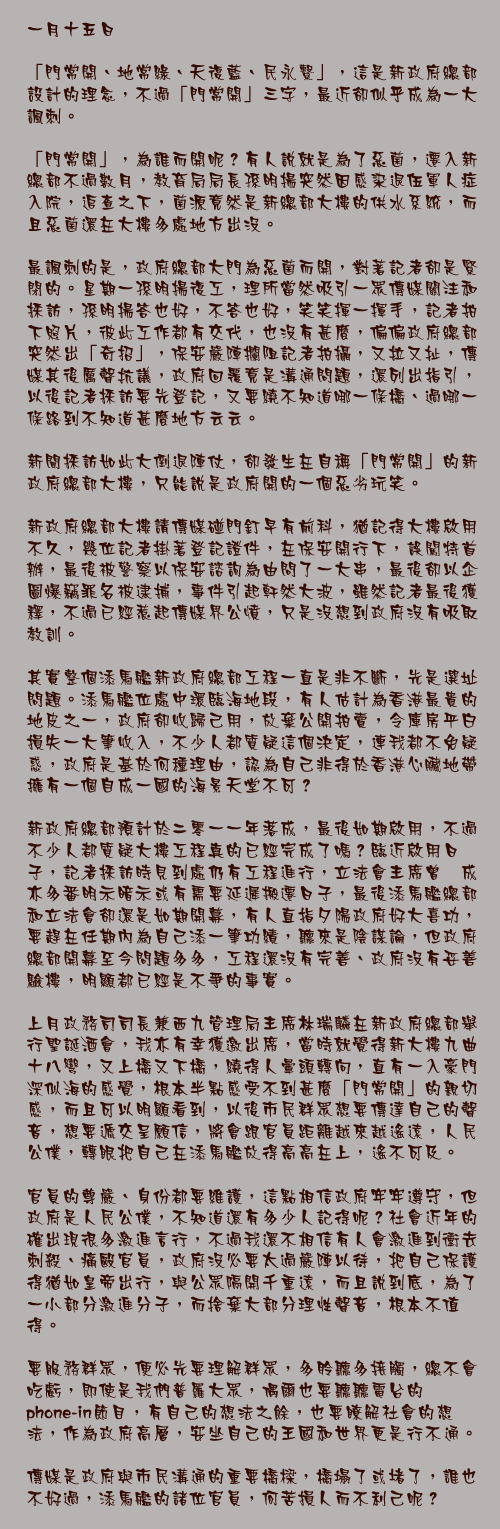 一月十五日
「門常開、地常綠、天復藍、民永覽」，這是新政府總部
設計的理念，不過「門常開」三字，最近卻似乎成為一大
諷刺。
「門常開」，為誰而開呢？有人說就是為了惡菌，遷入新
總部不過數月，教育局局長孫明揚突然因感染退伍軍人症
入院，追查之下，菌源竟然是新總部大樓的供水系統，而
且惡菌還在大樓多處地方出沒。
最諷刺的是，政府總部大門為惡菌而開，對著記者卻是緊
閉的。星期一孫明揚復工，理所當然吸引一眾傳媒關注和
採訪，孫明揚答也好，不答也好，笑笑揮一揮手，記者拍
下照片，彼此工作都有交代，也沒有甚麼，偏偏政府總部
突然出「奇招」，保安嚴陣攔阻記者拍攝，又拉又扯，傳
媒其後厲聲抗議，政府回覆竟是溝通問題，還列出指引，
以後記者採訪要先登記，又要繞不知道哪一條橋、過哪一
條路到不知道甚麼地方云云。
新聞採訪如此大倒退陣仗，卻發生在自稱「門常開」的新
政府總部大樓，只能說是政府開的一個惡劣玩笑。
新政府總部大樓請傳媒碰門釘早有前科，猶記得大樓啟用
不久，幾位記者掛著登記證件，在保安開行下，誤闖特首
辦，最後被警察以保安諮詢為由問了一大串，最後卻以企
圖爆竊罪名被逮捕，事件引起軒然大波，雖然記者最後獲
釋，不過已經惹起傳媒界公憤，只是沒想到政府沒有吸取
教訓。
其實整個添馬艦新政府總部工程一直是非不斷，先是選址
問題。添馬艦位處中環臨海地段，有人估計為香港最貴的
地皮之一，政府卻收歸己用，放棄公開拍賣，令庫房平白
損失一大筆收入，不少人都質疑這個決定，連我都不免疑
惑，政府是基於何種理由，認為自己非得於香港心臟地帶
擁有一個自成一國的海景天堂不可？
新政府總部預計於二零一一年落成，最後如期啟用，不過
不少人都質疑大樓工程真的已經完成了嗎？臨近啟用日
子，記者採訪時見到處仍有工程進行，立法會主席曾　成
亦多番明示暗示或有需要延遲搬遷日子，最後添馬艦總部
和立法會卻還是如期開幕，有人直指夕陽政府好大喜功，
要趕在任期內為自己添一筆功績，聽來是陰謀論，但政府
總部開幕至今問題多多，工程還沒有完善、政府沒有妥善
驗樓，明顯都已經是不爭的事實。
上月政務司司長兼西九管理局主席林瑞麟在新政府總部舉
行聖誕酒會，我亦有幸獲邀出席，當時就覺得新大樓九曲
十八彎，又上橋又下橋，繞得人暈頭轉向，直有一入豪門
深似海的感覺，根本半點感受不到甚麼「門常開」的親切
感，而且可以明顯看到，以後市民群眾想要傳達自己的聲
音，想要遞交呈願信，將會跟官員距離越來越遙遠，人民
公僕，轉眼把自己在添馬艦放得高高在上，遙不可及。
官員的尊嚴、身份都要維護，這點相信政府牢牢遵守，但
政府是人民公僕，不知道還有多少人記得呢？社會近年的
確出現很多激進言行，不過我還不相信有人會激進到衝去
刺殺、痛毆官員，政府沒必要太過嚴陣以待，把自己保護
得猶如皇帝出行，與公眾隔開千重遠，而且說到底，為了
一小部分激進分子，而捨棄大部分理性聲音，根本不值
得。
要服務群眾，便必先要理解群眾，多聆聽多接觸，總不會
吃虧，即使是我們普羅大眾，偶爾也要聽聽電台的
phone-in節目，有自己的想法之餘，也要瞭解社會的想
法，作為政府高層，安坐自己的王國和世界更是行不通。
傳媒是政府與市民溝通的重要橋樑，橋塌了或堵了，誰也
不好過，添馬艦的諸位官員，何苦損人而不利己呢？